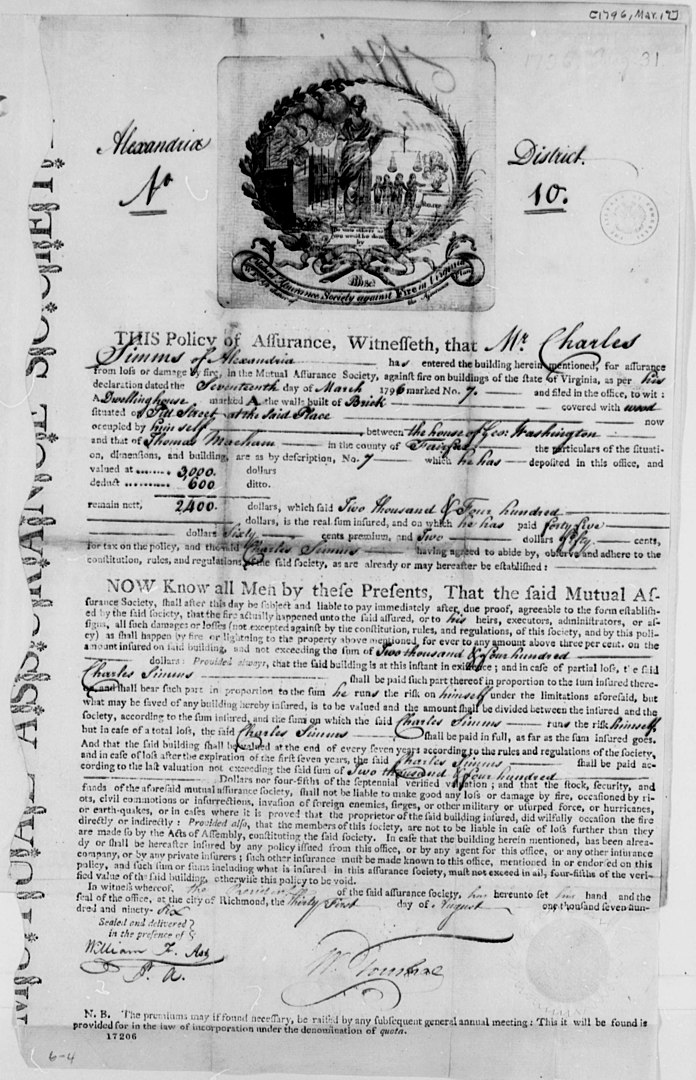 [1796, Mar. 17]
Alexandria
District.
No
10.
Mutual Assurance Society against Fire on Buildings
THIS Policy of Aſſurance, Witneſſeth, that Mr. Charles
Simms of Alexandria has entered the building herein mentioned, for aſſurance
from loſs or damage by fire, in the Mutual Aſſurance Society, againſt fire on buildings of the ſtate of Virginia, as per his
declaration dated the Seventeenth day of March 1796 marked No. 7. and filed in the office, to wit:
A Dwelling house marked A the walls built of Brick covered with wood
situated on Pitt Street at the said Place now
occupied by himself between the house of Geo: Washington
and that of Thomas Macham in the county of Fairfax the particulars of the ſituati-
on, dimenſions, and building, are as by deſcription, No. 7 which he has depoſited in this office, and
valued at 3,000. dollars
deduct 600 ditto.
remain nett, 2,400. dollars, which ſaid Two thousand & Four hundred
dollars, is the real ſum inſured, and on which he has paid forty five
dollars Sixty cents premium, and Two dollars fifty cents,
for tax on the policy, and the ſaid Charles Simms having agreed to abide by, obſerve and adhere to the
conſtitution, rules, and regulations of the ſaid ſociety, as are already or may hereafter be eſtabliſhed:
NOW Know all Men by theſe Preſents, That the ſaid Mutual Aſ-
ſurance Society, ſhall after this day be ſubject and liable to pay immediately after due proof, agreeable to the form eſtabliſh-
ed by the ſaid ſociety, that the fire actually happened unto the ſaid aſſured, or to his heirs, executors, adminiſtrators, or aſ-
ſigns, all ſuch damages or loſſes (not excepted againſt by the conſtitution, rules, and regulations, of this ſociety, and by this poli-
cy) as ſhall happen by fire or lightning to the property above mentioned, for ever to any amount above three per cent. on the
amount inſured on ſaid building, and not exceeding the ſum of Two thousand & four hundred
dollars: Provided always, that the ſaid building is at this inſtant in exiſtence; and in caſe of partial loſs, the ſaid
Charles Simms ſhall be paid ſuch part thereof in proportion to the ſum inſured there-
by, and ſhall bear ſuch part in proportion to the ſum he runs the riſk on himself under the limitations aforeſaid, but
what may be ſaved of any building hereby inſured, is to be valued and the amount ſhall be divided between the inſured and the
ſociety, according to the ſum inſured, and the ſum on which the ſaid Charles Simms runs the riſk himself
but in caſe of a total loſs, the ſaid Charles Simms ſhall be paid in full, as far as the ſum inſured goes.
And that the ſaid building ſhall be valued at the end of every ſeven years according to the rules and regulations of the ſociety,
and in caſe of loſs after the expiration of the firſt ſeven years, the ſaid Charles Simms ſhall be paid ac-
cording to the laſt valuation not exceeding the ſaid ſum of Two thousand & four hundred
Dollars nor four-fifths of the ſeptennial verified valuation; and that the ſtock, ſecurity, and
funds of the aforeſaid mutual aſſurance ſociety, ſhall not be liable to make good any loſs or damage by fire, occaſioned by ri-
ots, civil commotions or inſurrections, invaſion of foreign enemies, ſieges, or other military or uſurped force, or hurricanes,
or earth-quakes, or in caſes where it is proved that the proprietor of the ſaid building inſured, did wilfully occaſion the fire
directly or indirectly: Provided alſo, that the members of this ſociety, are not to be liable in caſe of loſs further than they
are made ſo by the Acts of Aſſembly, conſtituting the ſaid ſociety. In caſe that the building herein mentioned, has been alrea-
dy or ſhall be hereafter inſured by any policy iſſued from this office, or by any agent for this office, or any other inſurance
company, or by any private inſurers; ſuch other inſurance muſt be made known to this office, mentioned in or endorſed on this
policy, and ſuch ſum or ſums including what is inſured in this aſſurance ſociety, muſt not exceed in all, four-fifths of the veri-
fied value of the ſaid building, otherwiſe this policy to be void.
In witneſs whereof, the President of the ſaid aſſurance ſociety, has hereunto ſet his hand and the
ſeal of the office, at the city of Richmond, the thirty First day of August one thouſand ſeven hun-
dred and ninety-Six
Sealed and delivered
in the preſence of
William F. Ast
P. A.
N. B. The premiums may if found neceſſary, be raiſed by any ſubſequent general annual meeting: This it will be found is
provided for in the law of incorporation under the denomination of quota.
17206
6-4
MUTUAL ASSURANCE SOCIETY